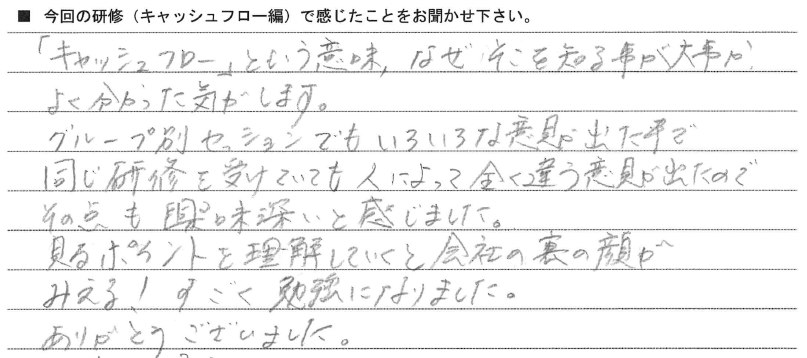 ■ 今回の研修（キャッシュフロー編）で感じたことをお聞かせ下さい。
「キャッシュフロー」という意味，なぜそこを知る事が大事か
よく分かった気がします。
グループ別セッションでもいろいろな意見が出た中で
同じ研修を受けていても人によって全く違う意見が出たので
その点も興味深いと感じました。
見るポイントを理解していくと会社の裏の顔が
みえる！すごく勉強になりました。
ありがとうございました。